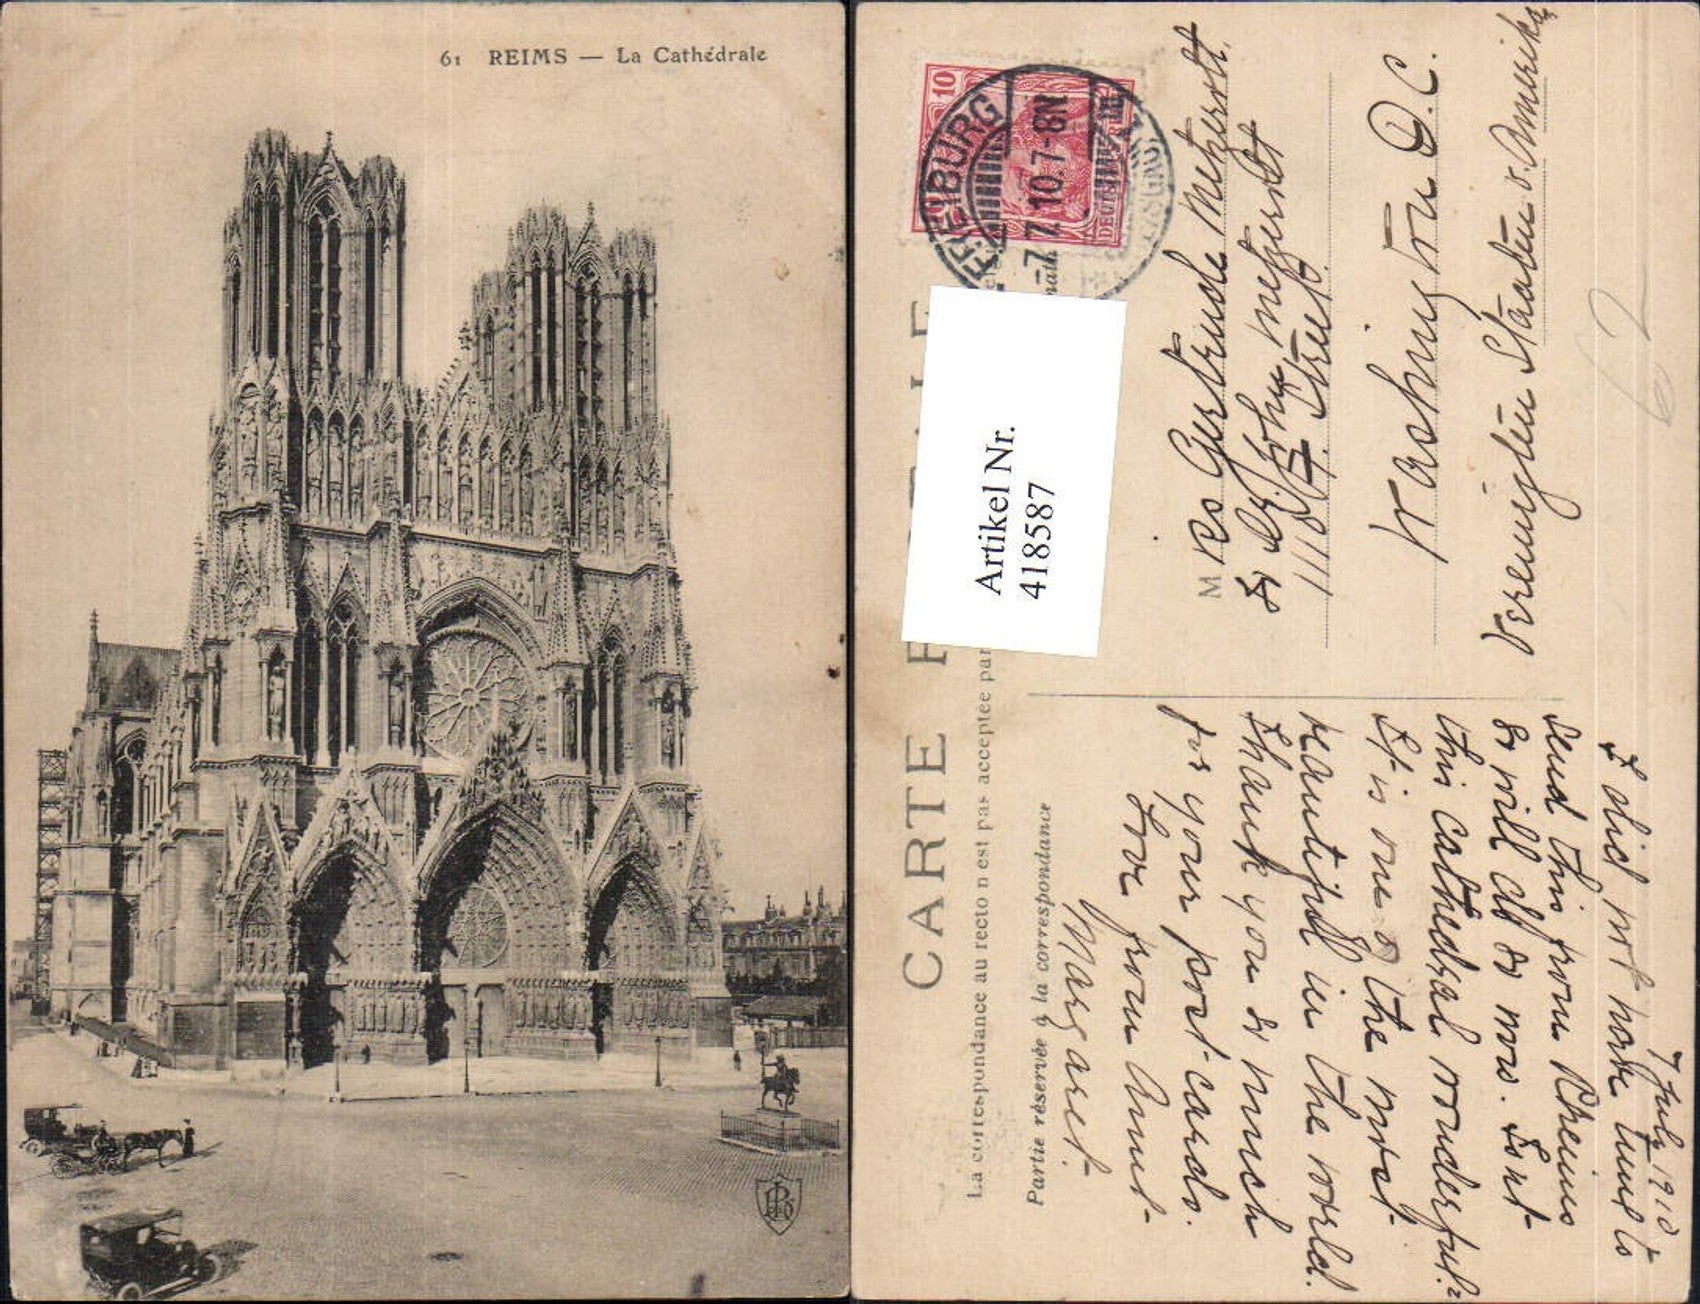 61 REIMS — La Cathédrale
10
FREIBURG
-7.7.10.7-8N.
CARTE P
La correspondance au recto n est pas acceptee par
Partie réservée à la correspondance
Artikel Nr.
418587
M
Gertrude Metzerott
Metzerott
1110 F. Street.
Washington D.C.
Vereinigten Staaten v. Amerika
62
7 July 1910
I did not have time to
send this from Rheims
so will do so now. Isn't
this cathedral wonderful?
It is one of the most
beautiful in the world.
Thank you so much
for your post-cards.
Love from Aunt
Margaret.